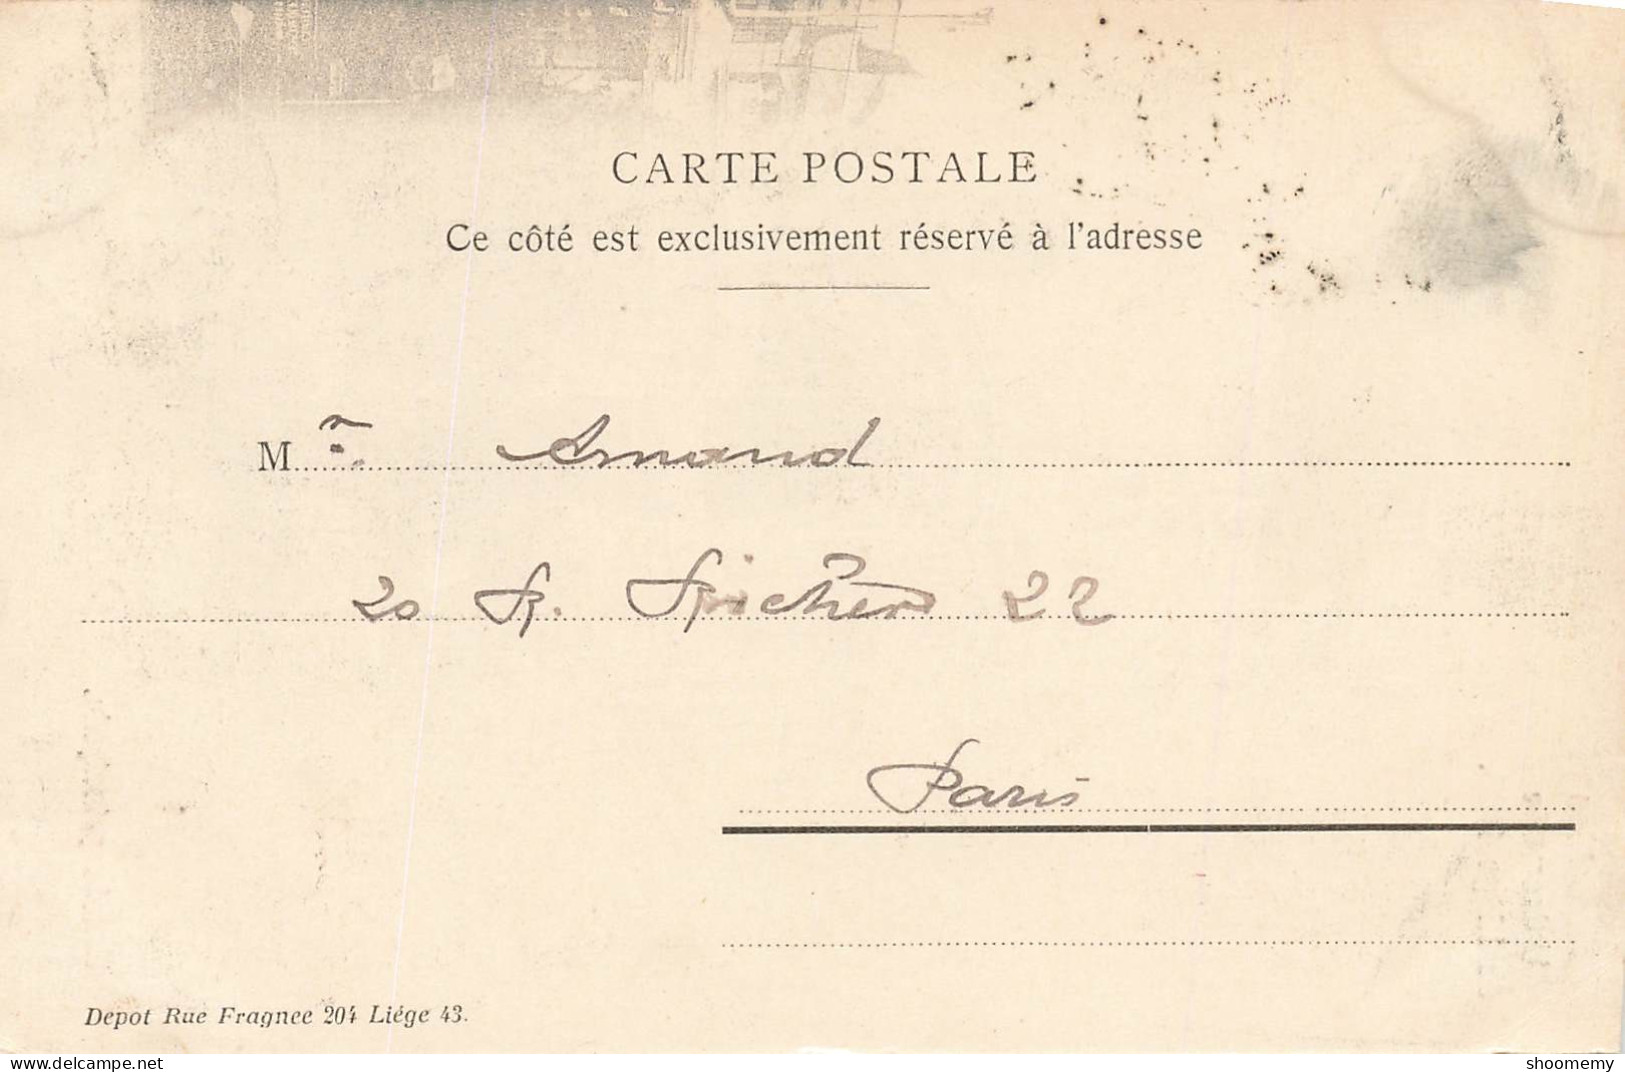 CARTE POSTALE
Ce côté est exclusivement réservé à l'adresse
Mr. Armand
20 R. Richer 22
Paris
Depot Rue Fragnee 204 Liége 43.
www.delcampe.net
shoomemy